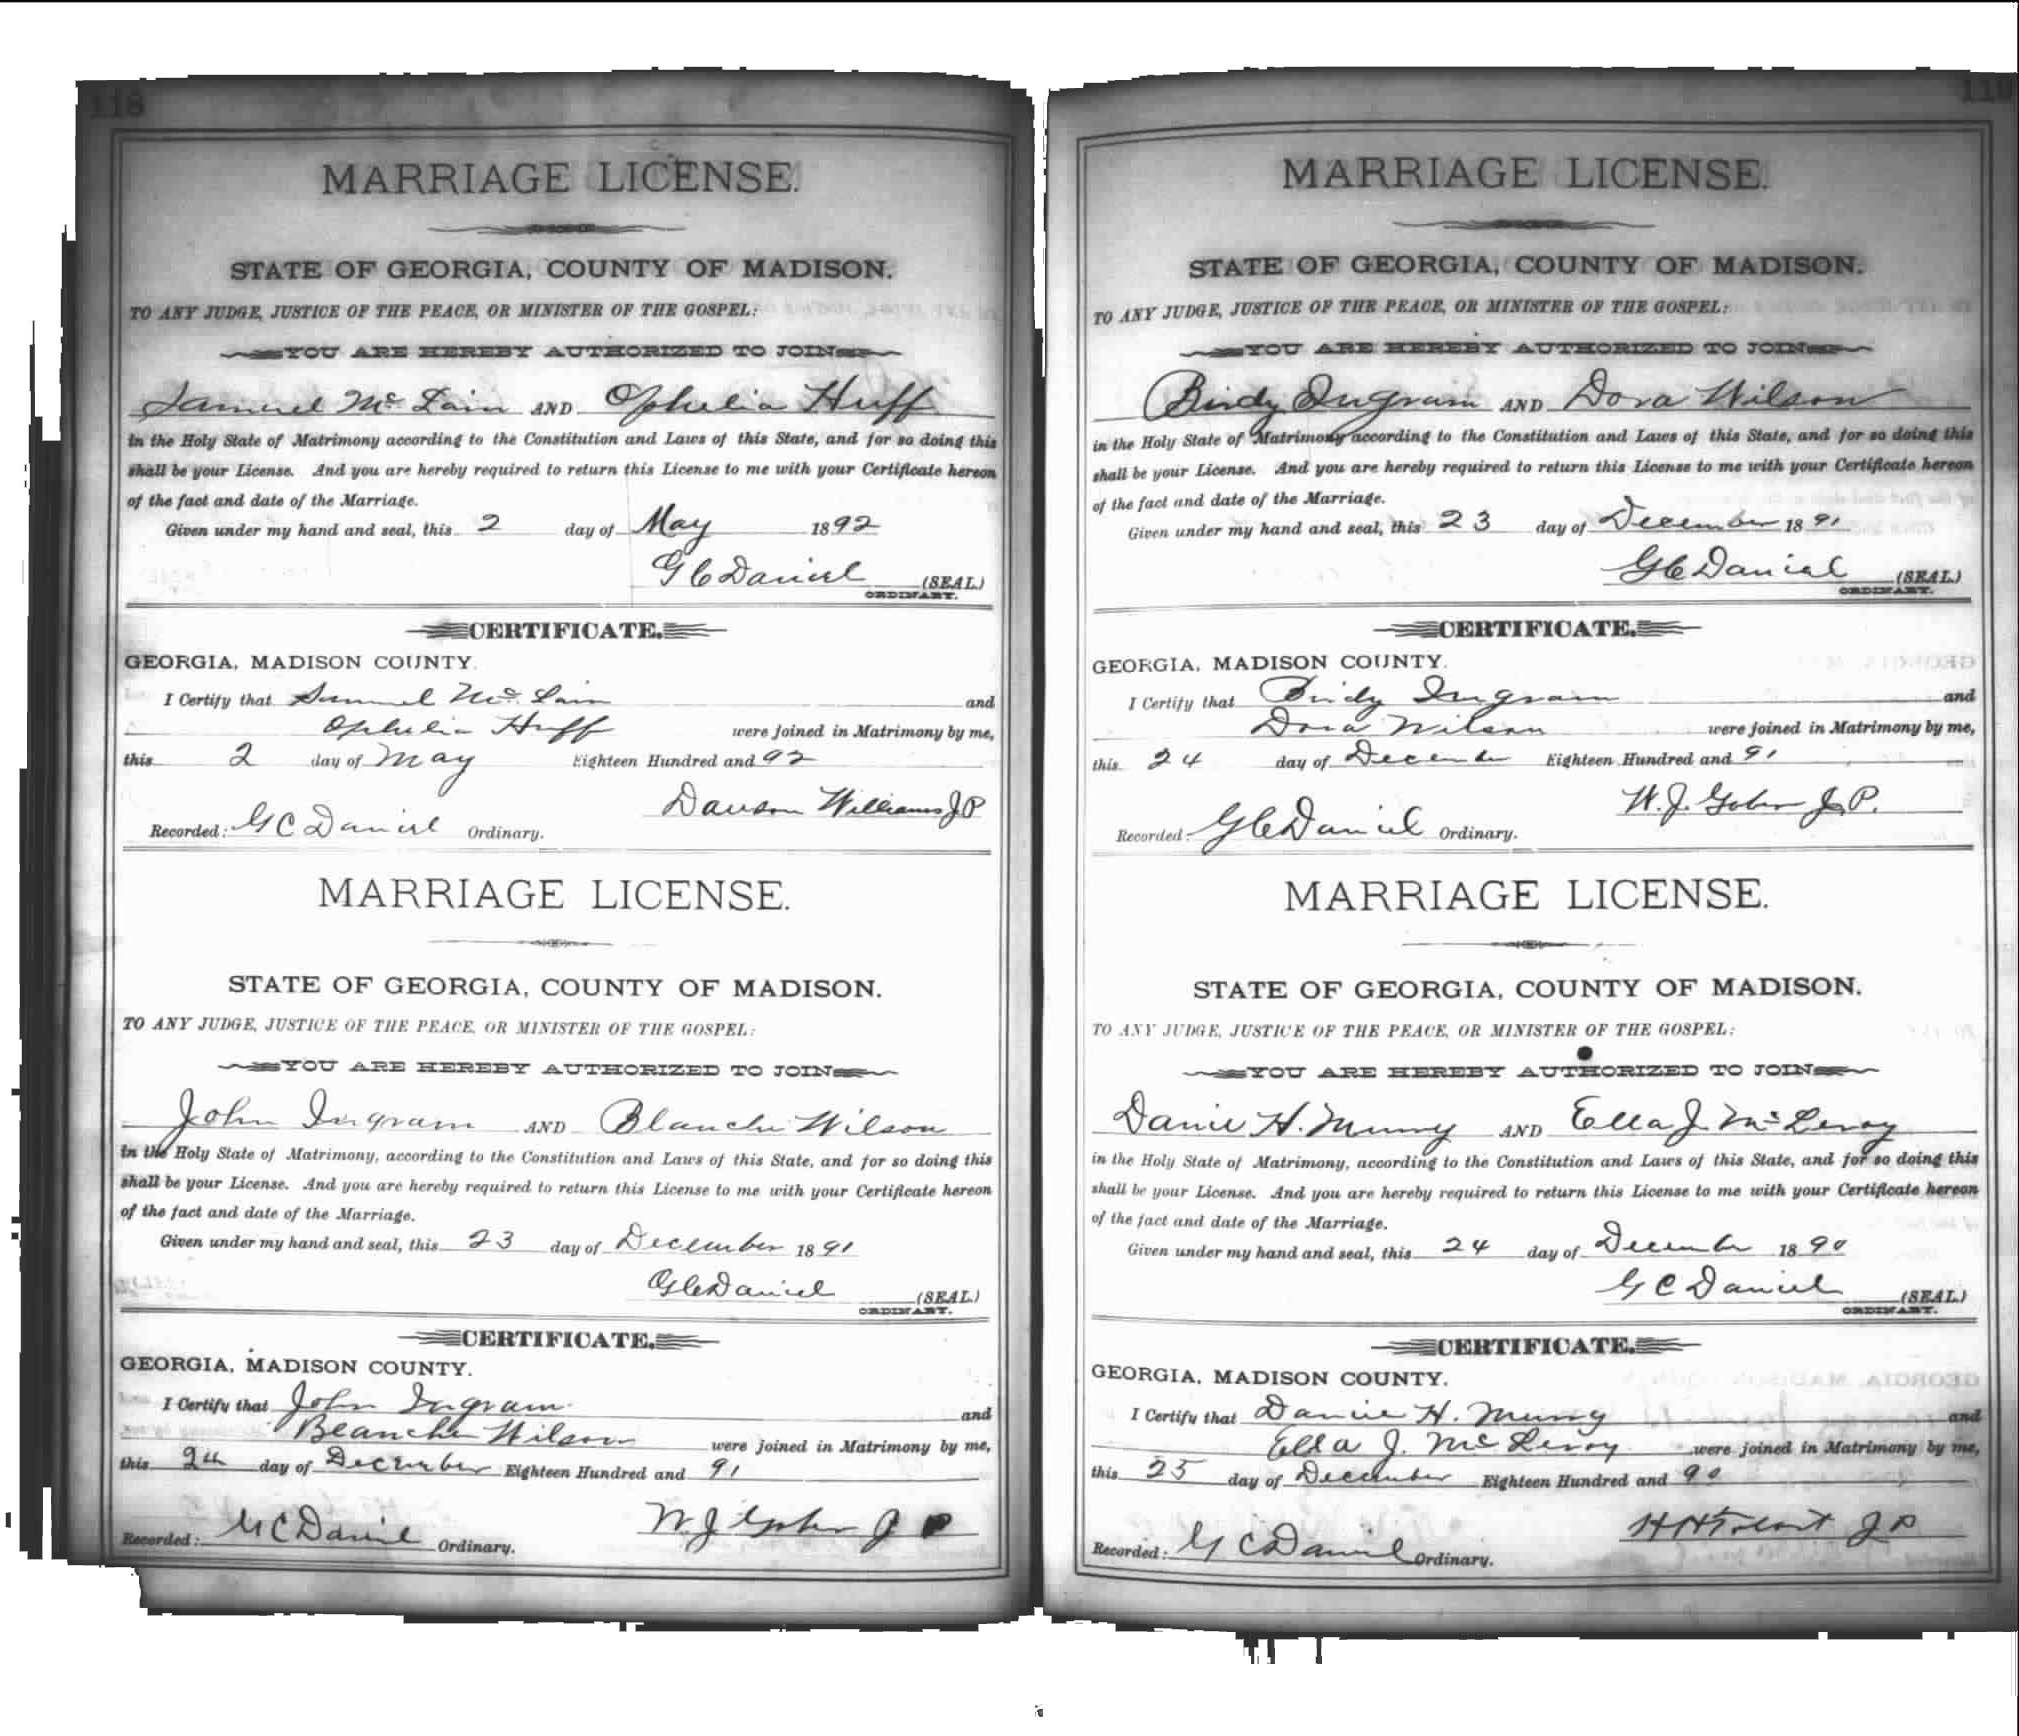 118
MARRIAGE LICENSE.
STATE OF GEORGIA, COUNTY OF MADISON.
TO ANY JUDGE, JUSTICE OF THE PEACE, OR MINISTER OF THE GOSPEL:
YOU ARE HEREBY AUTHORIZED TO JOIN
Samuel Mc Lain AND Ophelia Huff
in the Holy State of Matrimony according to the Constitution and Laws of this State, and for so doing this
shall be your License. And you are hereby required to return this License to me with your Certificate hereon
of the fact and date of the Marriage.
Given under my hand and seal, this 2 day of May 1892
G C Daniel (SEAL.)
ORDINARY.
CERTIFICATE.
GEORGIA, MADISON COUNTY.
I Certify that Samuel Mc Lain and
Ophelia Huff were joined in Matrimony by me,
this 2 day of May Eighteen Hundred and 92
Dawson Williams J P
Recorded: G C Daniel Ordinary.
MARRIAGE LICENSE.
STATE OF GEORGIA, COUNTY OF MADISON.
TO ANY JUDGE, JUSTICE OF THE PEACE, OR MINISTER OF THE GOSPEL:
YOU ARE HEREBY AUTHORIZED TO JOIN
John Ingram AND Blanche Wilson
in the Holy State of Matrimony, according to the Constitution and Laws of this State, and for so doing this
shall be your License. And you are hereby required to return this License to me with your Certificate hereon
of the fact and date of the Marriage.
Given under my hand and seal, this 23 day of December 1891
G C Daniel (SEAL.)
ORDINARY.
CERTIFICATE.
GEORGIA, MADISON COUNTY.
I Certify that John Ingram and
Blanche Wilson were joined in Matrimony by me,
this day of December Eighteen Hundred and 91
W J J P
Recorded: G C Daniel Ordinary.
119
MARRIAGE LICENSE.
STATE OF GEORGIA, COUNTY OF MADISON.
TO ANY JUDGE, JUSTICE OF THE PEACE, OR MINISTER OF THE GOSPEL:
YOU ARE HEREBY AUTHORIZED TO JOIN
Birdy Ingram AND Dora Wilson
in the Holy State of Matrimony according to the Constitution and Laws of this State, and for so doing this
shall be your License. And you are hereby required to return this License to me with your Certificate hereon
of the fact and date of the Marriage.
Given under my hand and seal, this 23 day of December 1891
G C Daniel (SEAL.)
ORDINARY.
CERTIFICATE.
GEORGIA, MADISON COUNTY.
I Certify that Birdy Ingram and
Dora Wilson were joined in Matrimony by me,
this 24 day of December Eighteen Hundred and 91
W. J. J. P.
Recorded: G C Daniel Ordinary.
MARRIAGE LICENSE.
STATE OF GEORGIA, COUNTY OF MADISON.
TO ANY JUDGE, JUSTICE OF THE PEACE, OR MINISTER OF THE GOSPEL:
YOU ARE HEREBY AUTHORIZED TO JOIN
H. AND Ella J. Mc Leroy
in the Holy State of Matrimony, according to the Constitution and Laws of this State, and for so doing this
shall be your License. And you are hereby required to return this License to me with your Certificate hereon
of the fact and date of the Marriage.
Given under my hand and seal, this 24 day of December 1890
G C Daniel (SEAL.)
ORDINARY.
CERTIFICATE.
GEORGIA, MADISON COUNTY.
I Certify that H. and
Ella J. Mc Leroy were joined in Matrimony by me,
this 25 day of December Eighteen Hundred and 90
H H J P
Recorded: G C Daniel Ordinary.